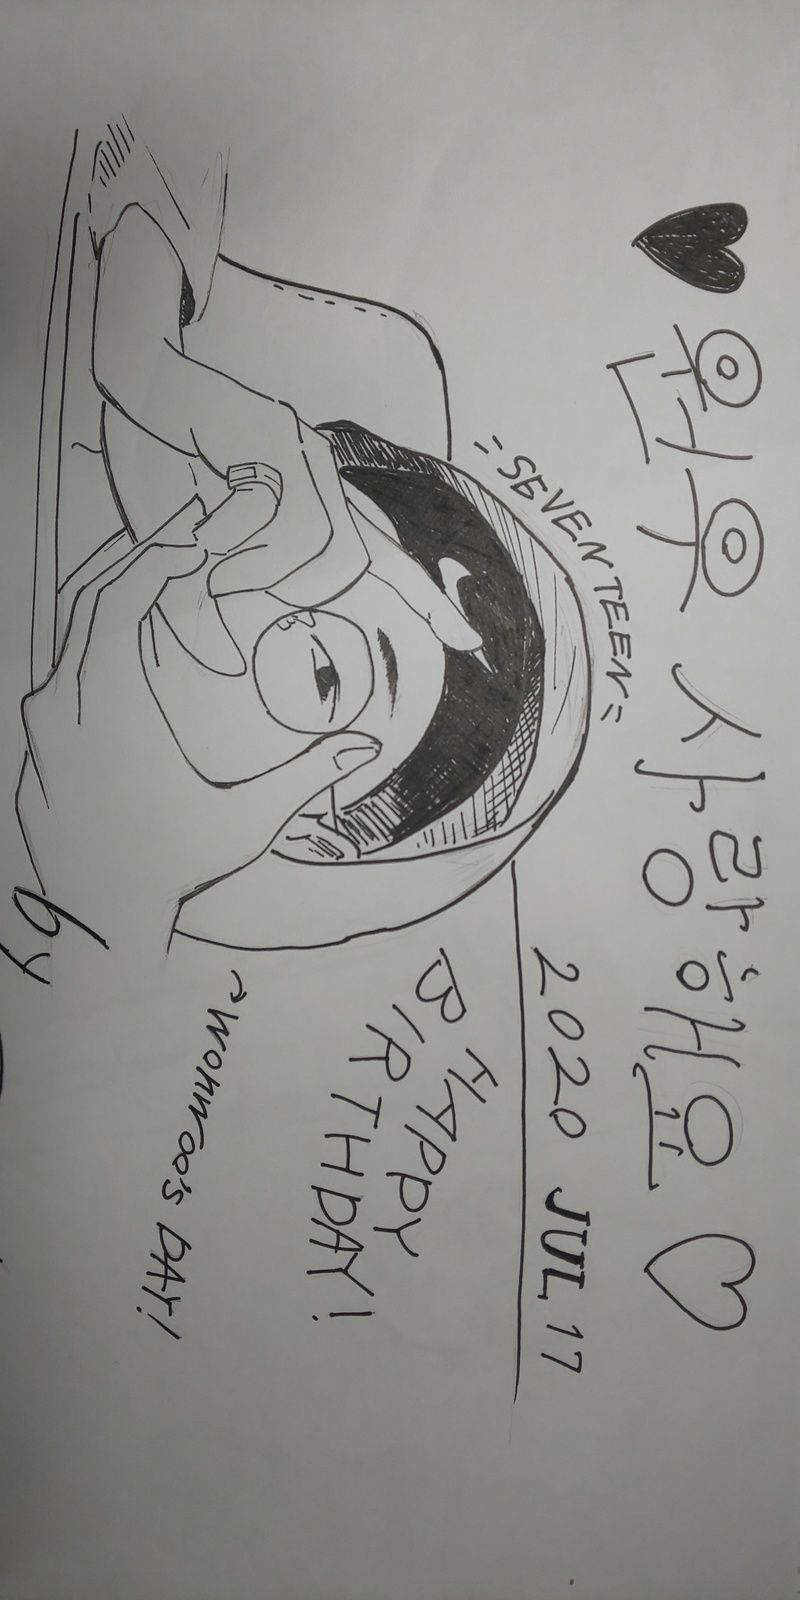 ♥원우 사랑해요♡
=SEVENTEEN=
2020 JUL 17
HAPPY
BIRTHDAY!
~WONWOO'S DAY!
by